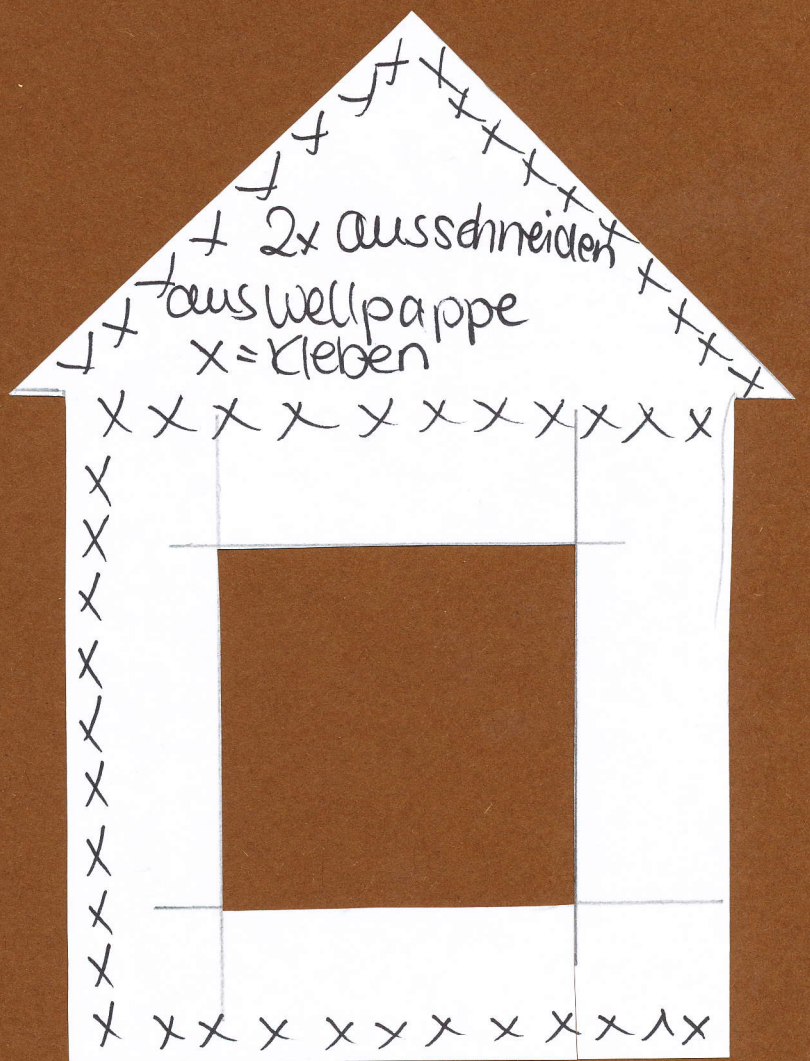 2x ausschneiden
aus Wellpappe
x = Kleben